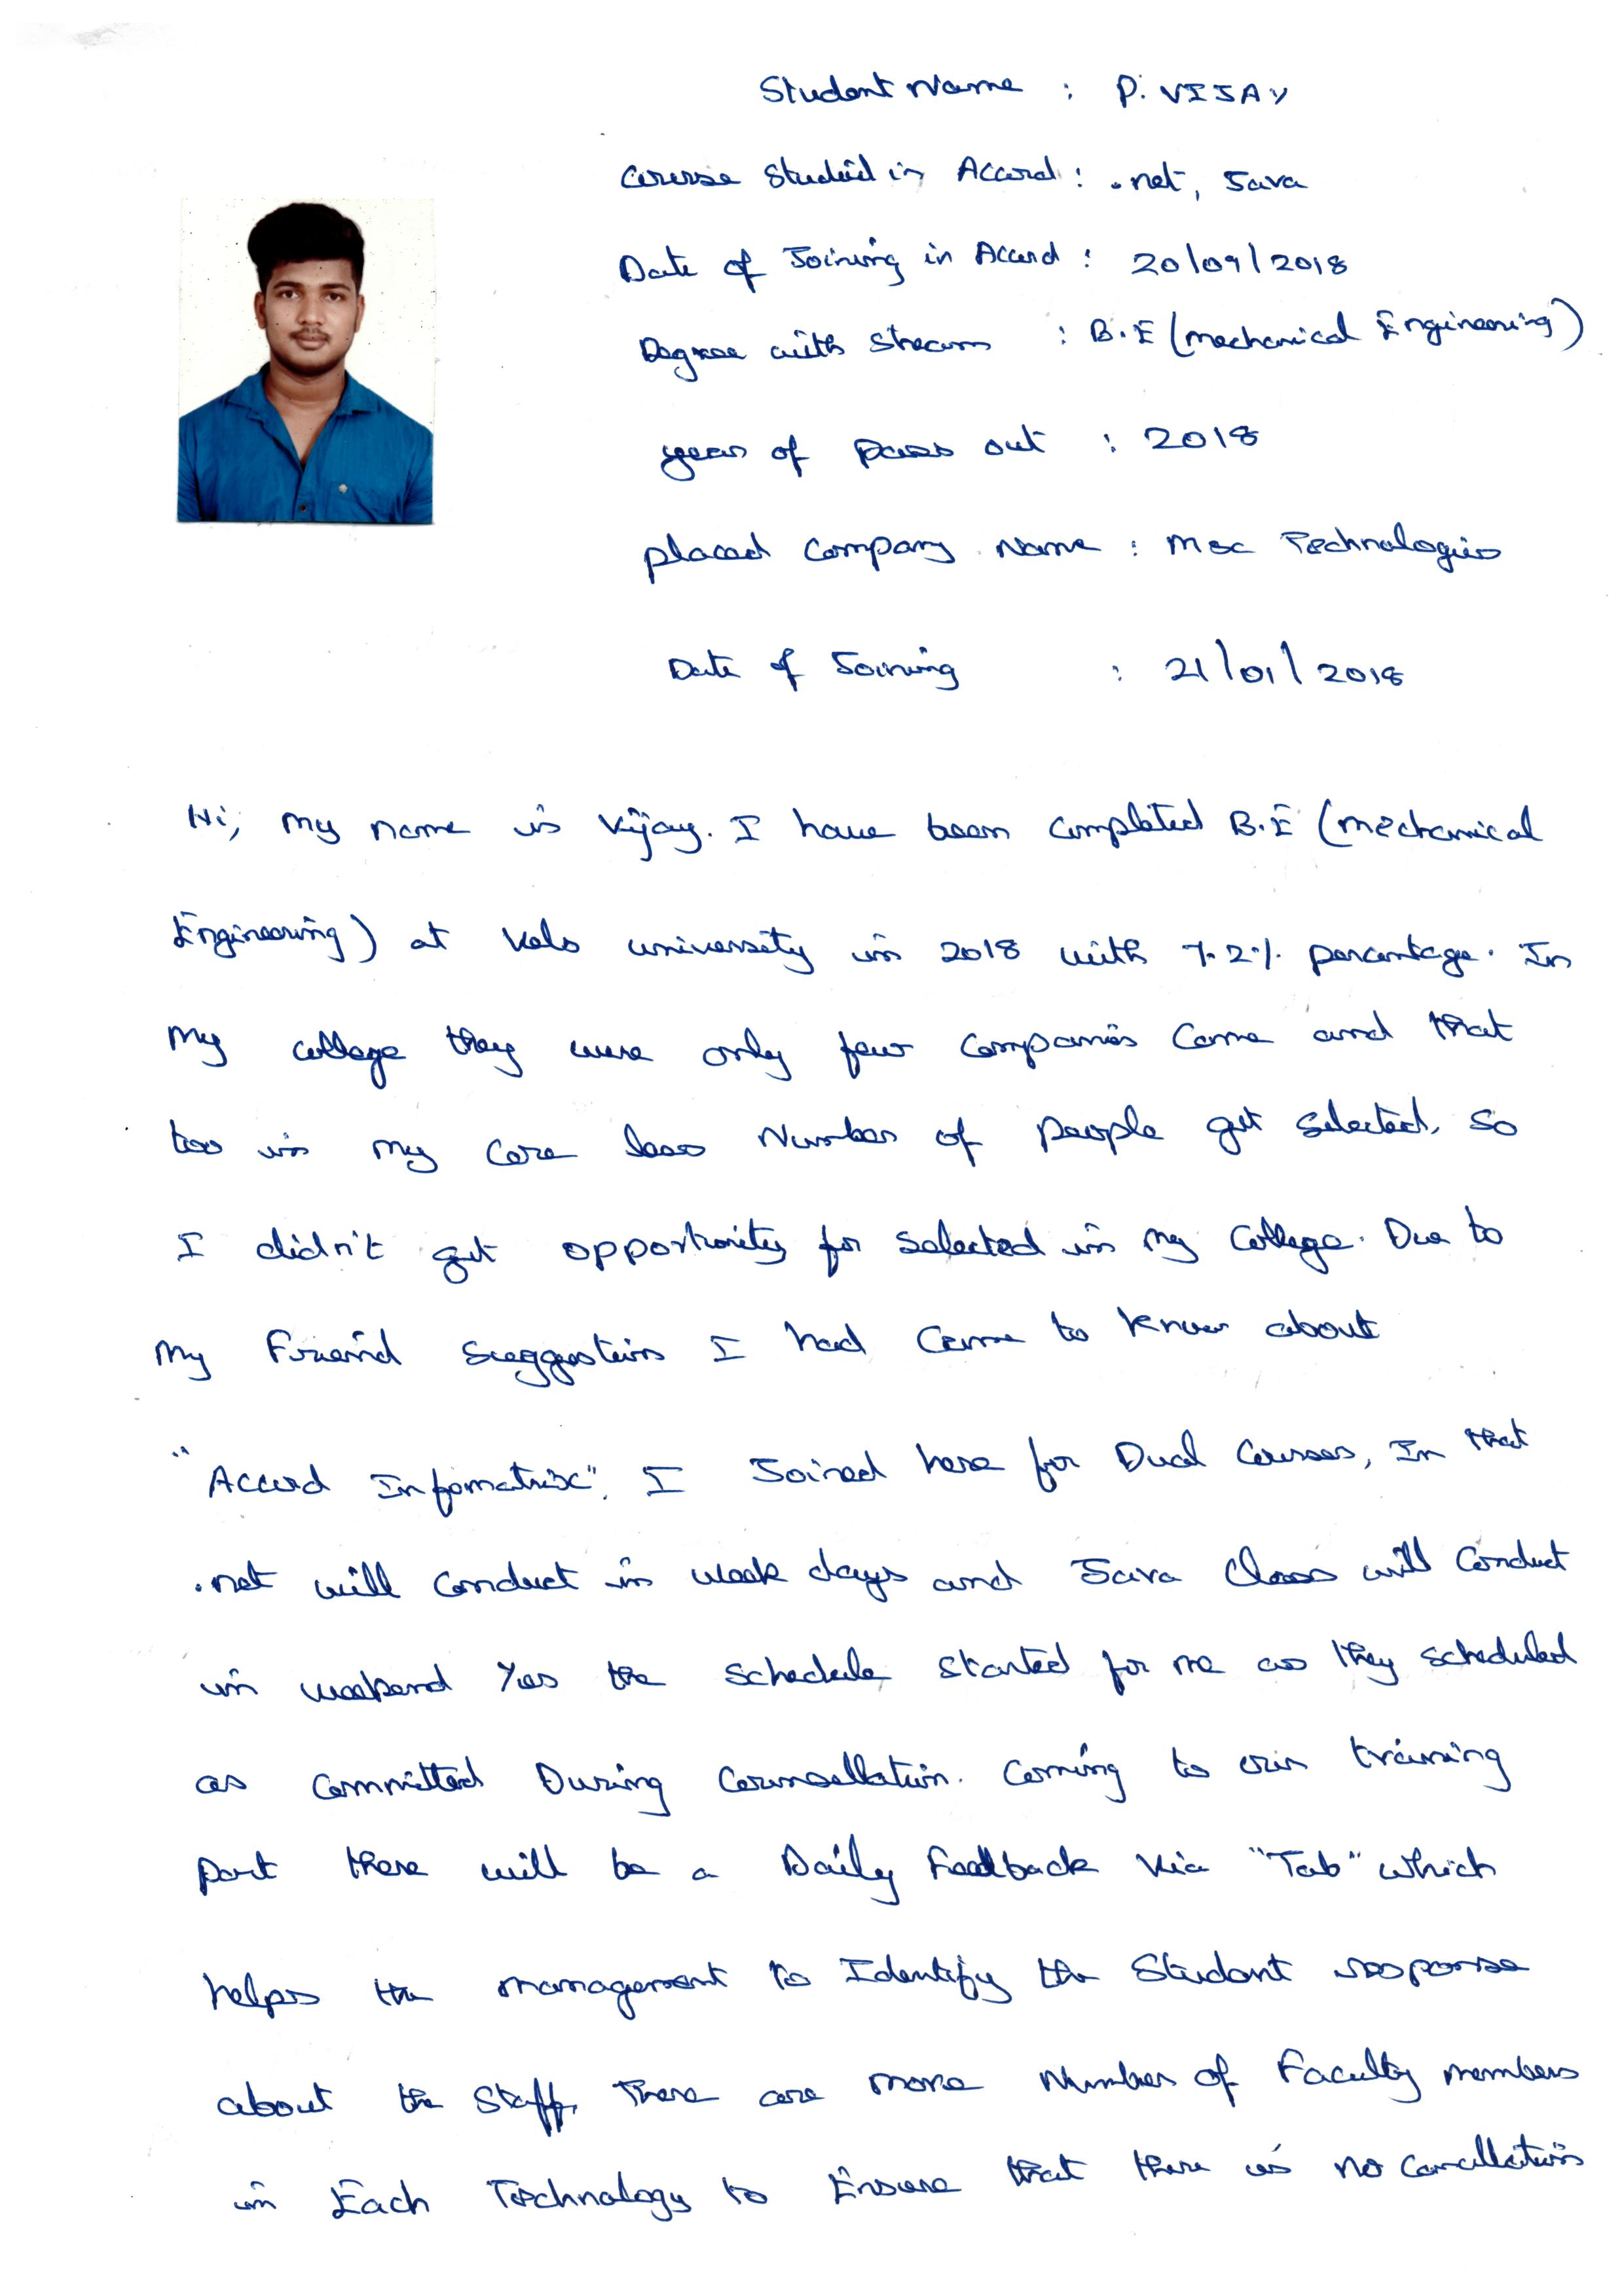 Student Name : P. VIJAY
Course Studied in Accord : .net, Java
Date of Joining in Accord : 20/09/2018
Degree with Stream : B.E (Mechanical Engineering)
year of pass out : 2018
placed Company Name : Msc Technologies
Date of Joining : 21/01/2018
Hi, my name is Vijay. I have been completed B.E (mechanical
Engineering) at Vels university in 2018 with 7.2% percentage. In
my college they were only few companies came and that
too in my core less Number of people get selected, so
I didn't get opportunity for selected in my college. Due to
my Friend suggestion I had came to know about
"Accord Infomatrix". I Joined here for Dual Courses, In that
.net will conduct in week days and Java Class will Conduct
in weekend Yes the Schedule started for me as they scheduled
as committed During Counsellation. Coming to our training
part there will be a Daily Feedback Via "Tab" which
helps the management to Identify the Student response
about the Staff, There are more Number of Faculty members
in Each Technology to Ensure that there is no Cancellation